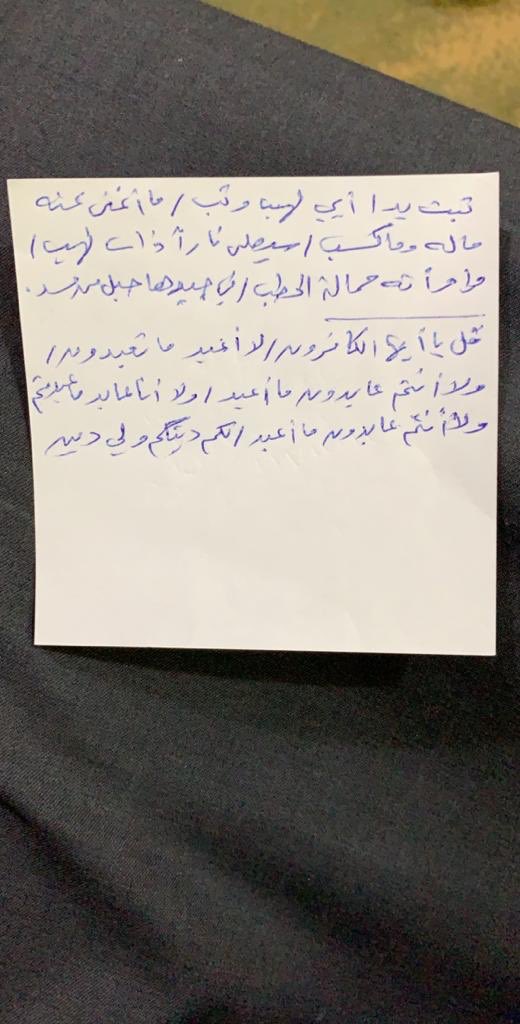 تبت يدا أبي لهب وتب / ما أغنى عنه
ماله وما كسب / سيصلى ناراً ذات لهب /
وامرأته حمالة الحطب / في جيدها حبل من مسد.
قل يا أيها الكافرون / لا أعبد ما تعبدون /
ولا أنتم عابدون ما أعبد / ولا أنا عابد ما عبدتم
ولا أنتم عابدون ما أعبد / لكم دينكم ولي دين